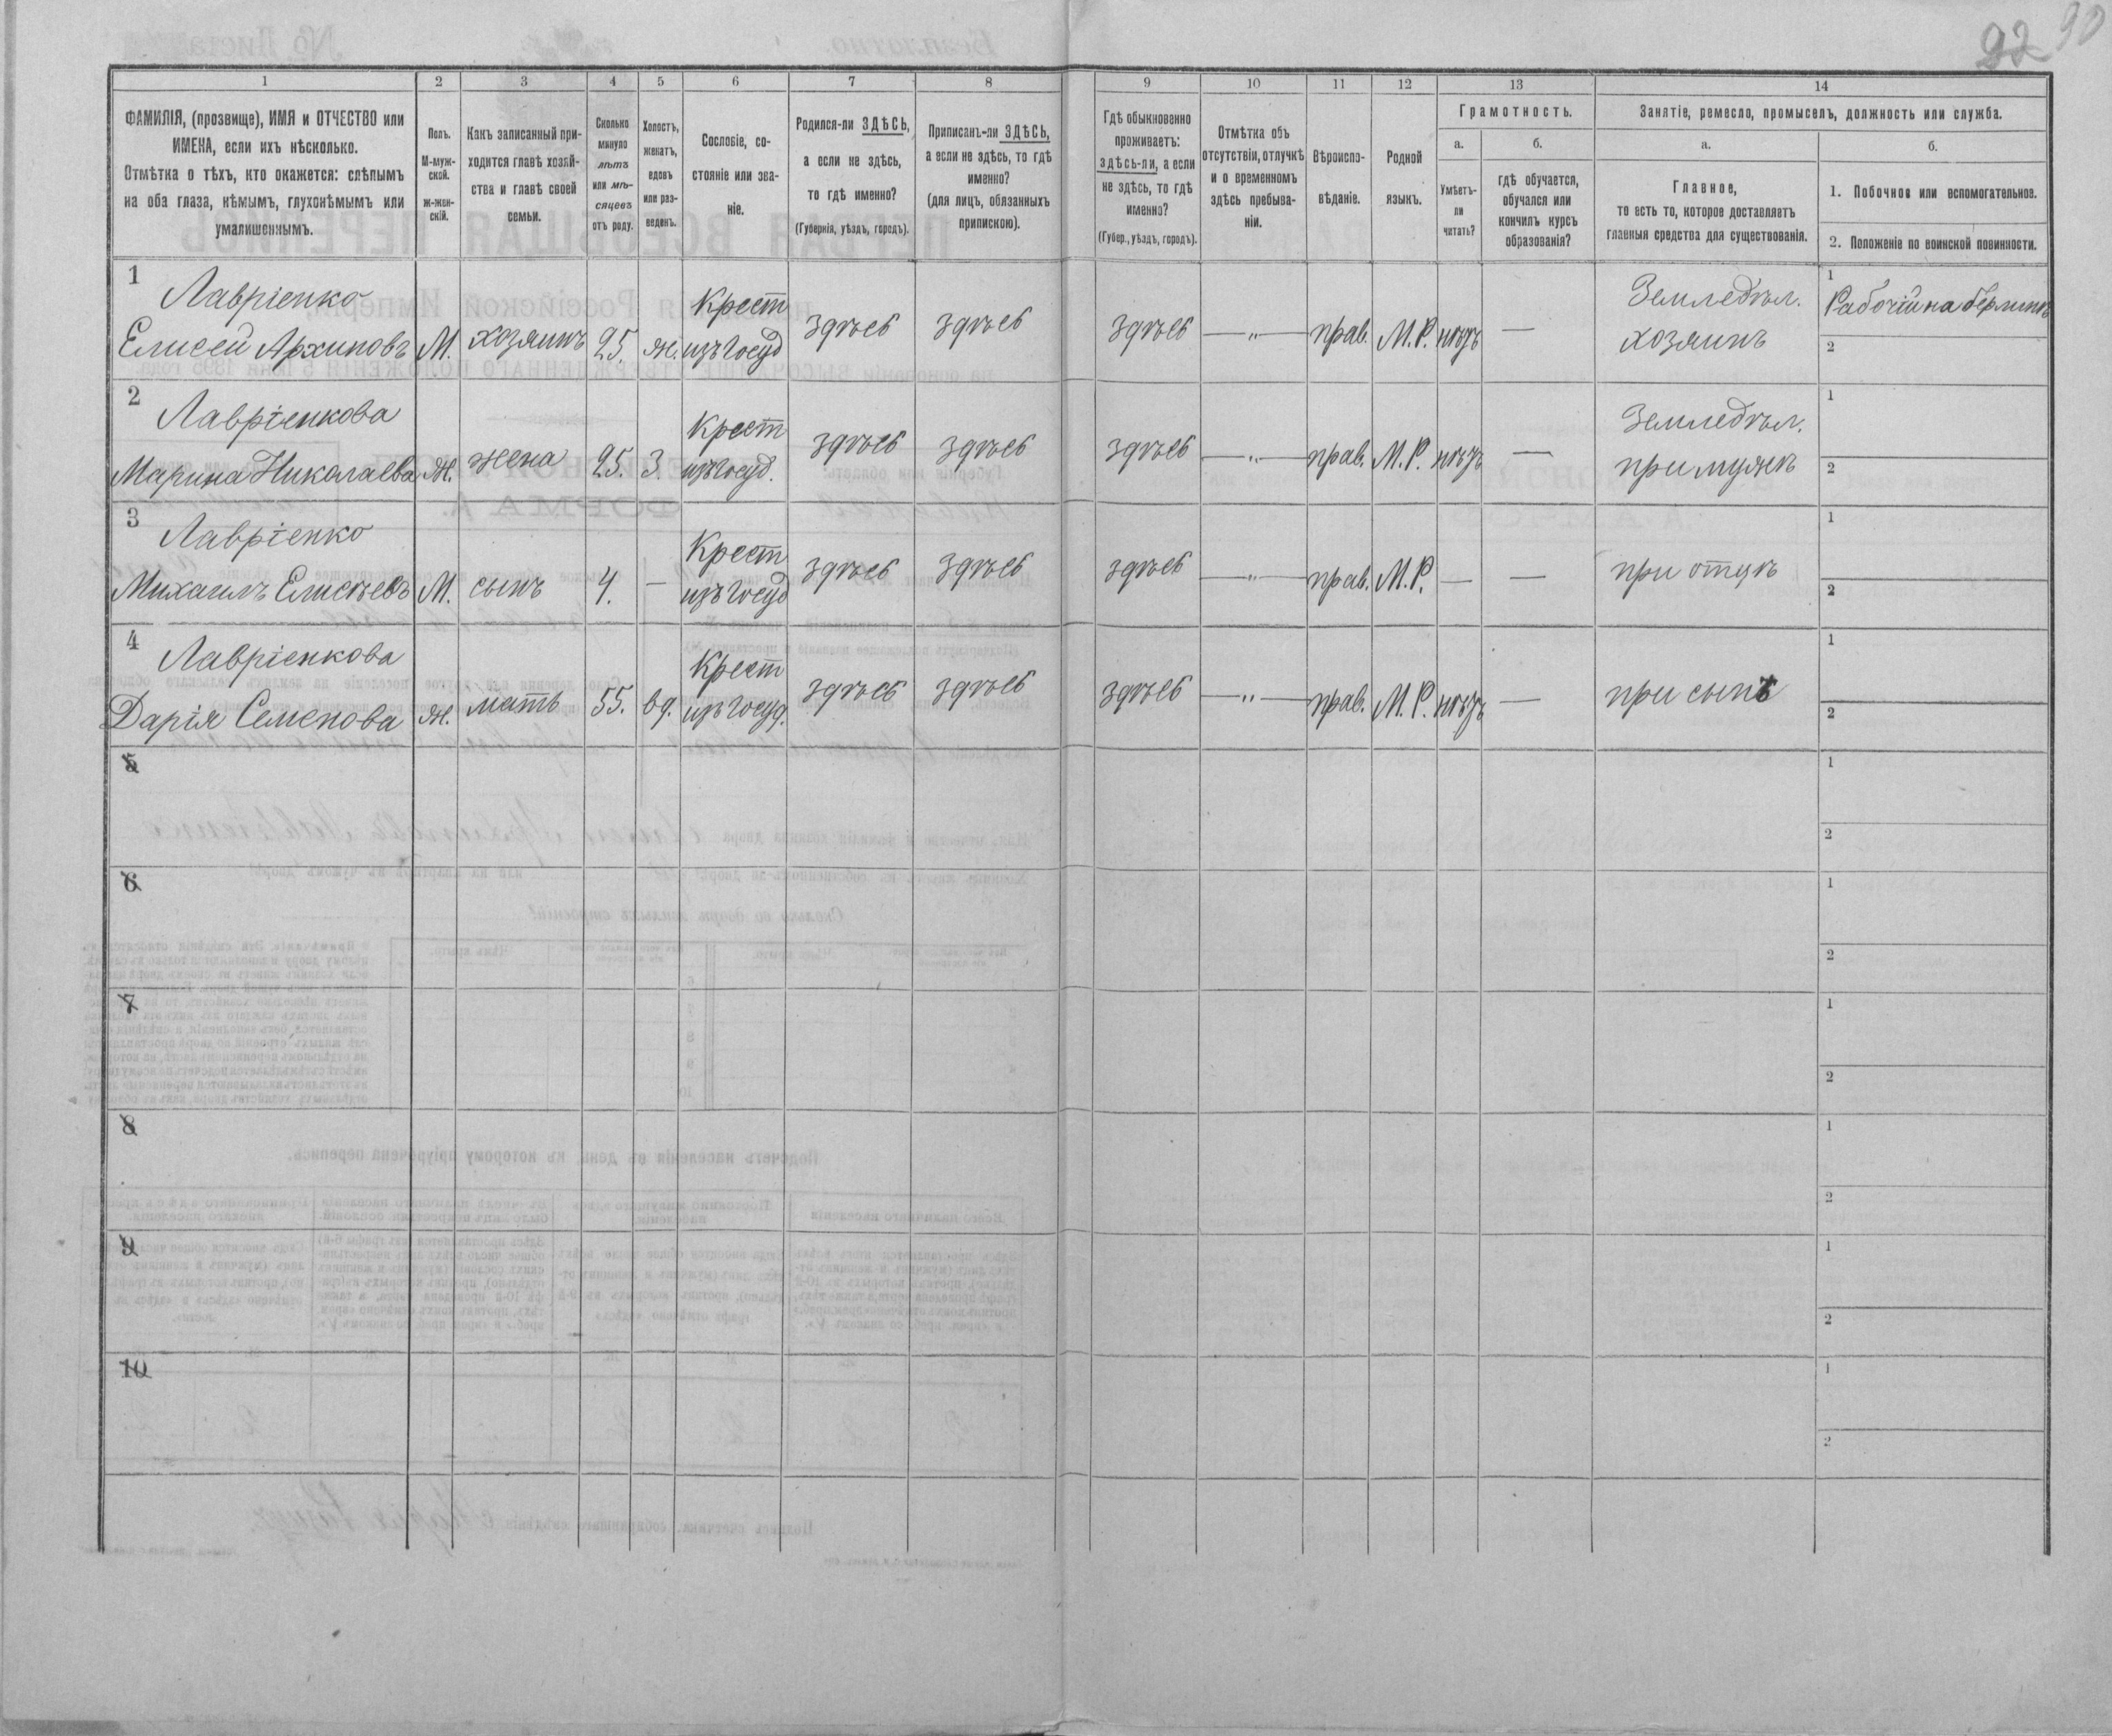 92 90
1 2 3 4 5 6 7 8 9 10 11 12 13 14
ФАМИЛІЯ, (прозвище), ИМЯ и ОТЧЕСТВО или
ИМЕНА, если ихъ нѣсколько.
Отмѣтка о тѣхъ, кто окажется: слѣпымъ
на оба глаза, нѣмымъ, глухонѣмымъ или
умалишеннымъ.
Полъ.
М-муж-
ской.
ж-жен-
скій.
Какъ записанный при-
ходится главѣ хозяй-
ства и главѣ своей
семьи.
Сколько
минуло
лѣтъ
или мѣ-
сяцевъ
отъ роду.
Холостъ,
женатъ,
вдовъ
или раз-
веденъ.
Сословіе, со-
стояніе или зва-
ніе.
Родился-ли ЗДѢСЬ,
а если не здѣсь,
то гдѣ именно?
(Губернія, уѣздъ, городъ).
Приписанъ-ли ЗДѢСЬ,
а если не здѣсь, то гдѣ
именно?
(для лицъ, обязанныхъ
припискою).
Гдѣ обыкновенно
проживаетъ:
здѣсь-ли, а если
не здѣсь, то гдѣ
именно?
(Губер., уѣздъ, городъ).
Отмѣтка объ
отсутствіи, отлучкѣ
и о временномъ
здѣсь пребыва-
ніи.
Вѣроиспо-
вѣданіе.
Родной
языкъ.
Грамотность.
а.
Умѣетъ-
ли
читать?
б.
гдѣ обучается,
обучался или
кончилъ курсъ
образованія?
Занятіе, ремесло, промыселъ, должность или служба.
а.
Главное,
то есть то, которое доставляетъ
главныя средства для существованія.
б.
1. Побочное или вспомогательное.
2. Положеніе по воинской повинности.
1 Лавріенко Крест Земледѣл. 1 Рабочій на
Елисей Архиповъ М. хозяинъ 25. ж. изъ госуд здѣсь здѣсь здѣсь —„— прав. М.Р. нѣтъ — хозяинъ 2
2 Лавріенкова Крест Земледѣл. 1
Марина Николаева Ж. жена 25. З. изъ госуд. здѣсь здѣсь здѣсь —„— прав. М.Р. нѣтъ — при мужѣ 2
3 Лавріенко Крест 1
Михаилъ Елисѣевъ М. сынъ 4. — изъ госуд здѣсь здѣсь здѣсь —„— прав. М.Р. — — при отцѣ 2
4 Лавріенкова Крест 1
Дарія Семенова Ж. мать 55. вд. изъ госуд. здѣсь здѣсь здѣсь —„— прав. М.Р. нѣтъ — при сынѣ 2
5 1
2
6 1
2
7 1
2
8 1
2
9 1
2
10 1
2